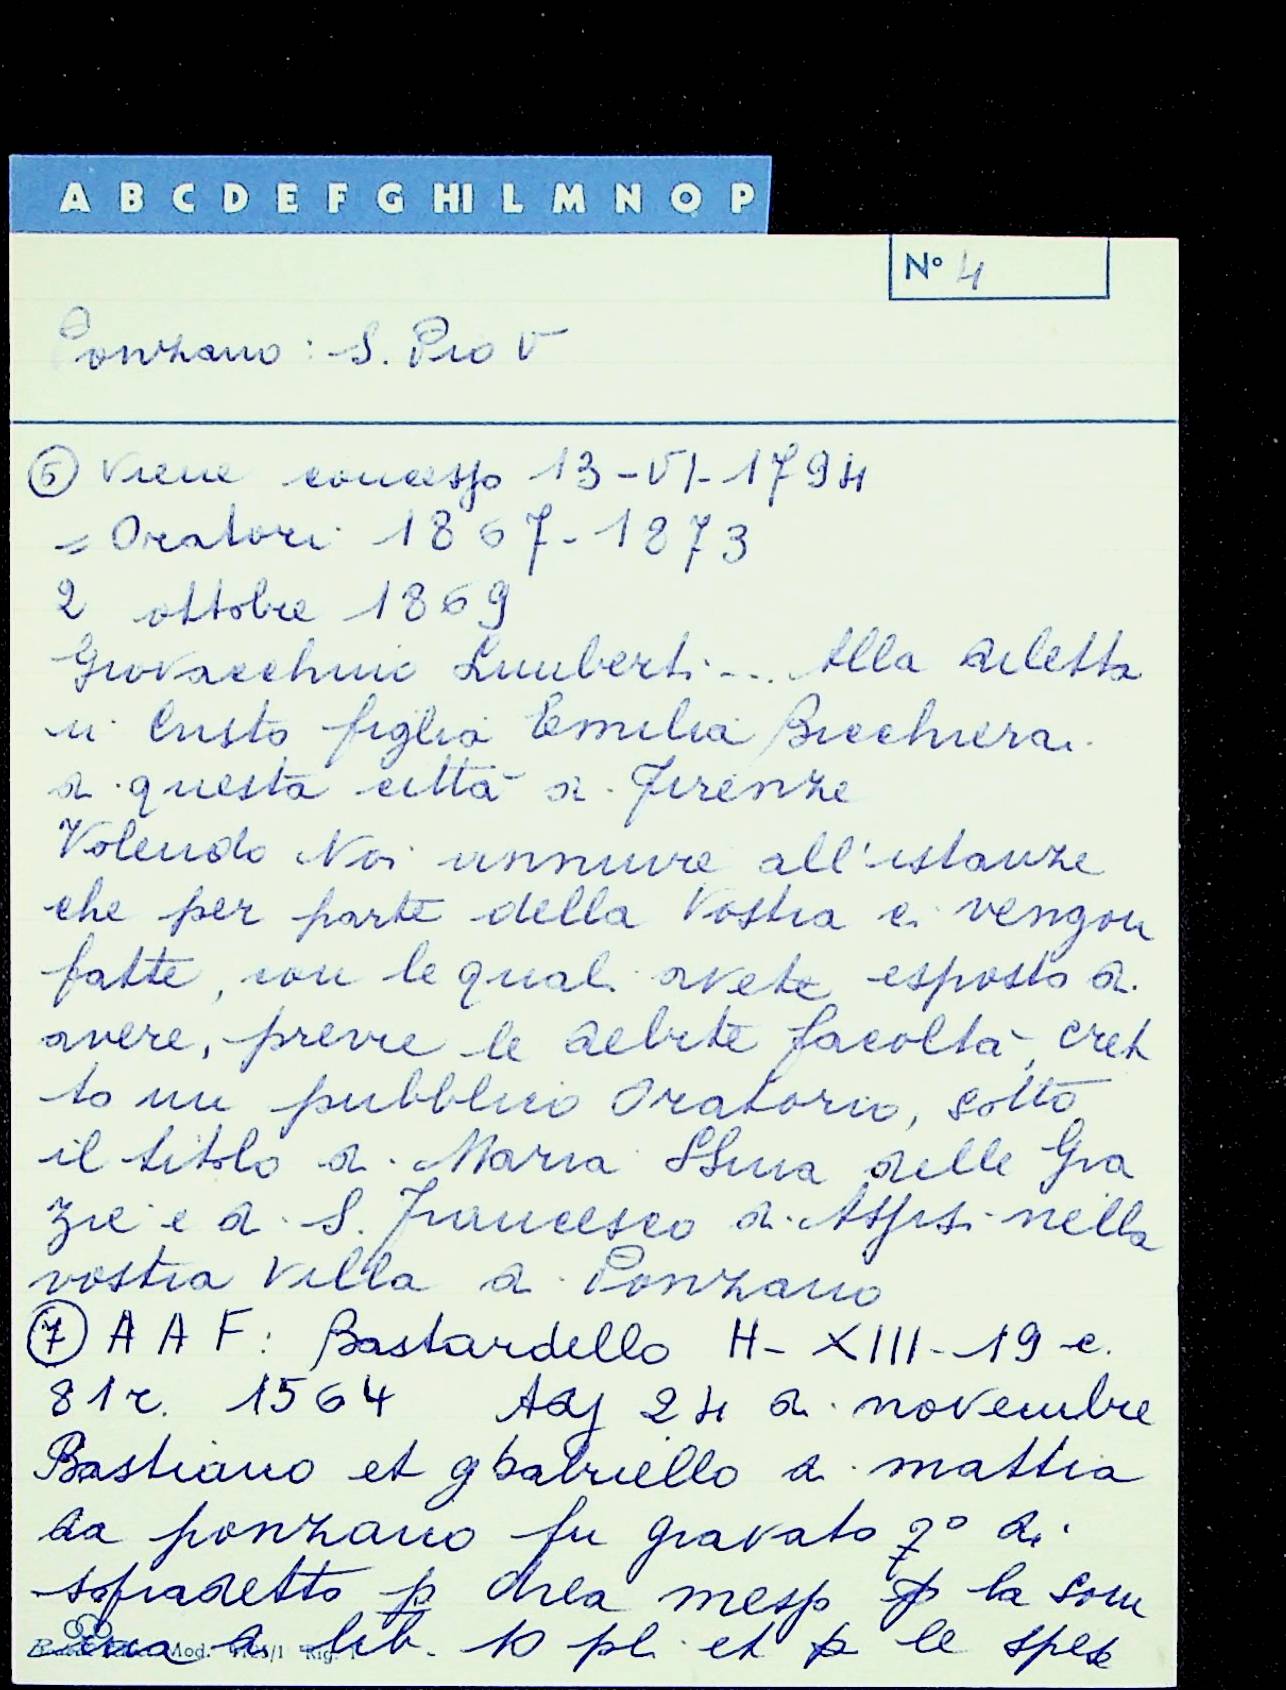 A B C D E F G HI L M N O P
N° 4
Ponzano: S. Pio V
⑥ Viene concesso 13-VI-1794
= Oratori 1867-1873
2 ottobre 1869
Giovacchino Limberti... Alla diletta
in Cristo figlia Emilia Bicchierai
di questa città di Firenze
Volendo Noi annuire all'istanze
che per parte della Vostra ci vengon
fatte, con le quali avete esposto di
avere, previe le debite facoltà, eret
to un pubblico Oratorio, sotto
il titolo di Maria SSma delle Gra
zie e di S. Francesco di Assisi nella
vostra Villa di Ponzano
⑦ A A F: Bastardello H- XIII-19 c.
81r. 1564 Adj 24 di novembre
Bastiano et ghabriello di mattia
da ponzano fu gravato qº di
sopradetto p drea messo p la som
ma di lib. 10 pli et p le spese
Mod. Rig.